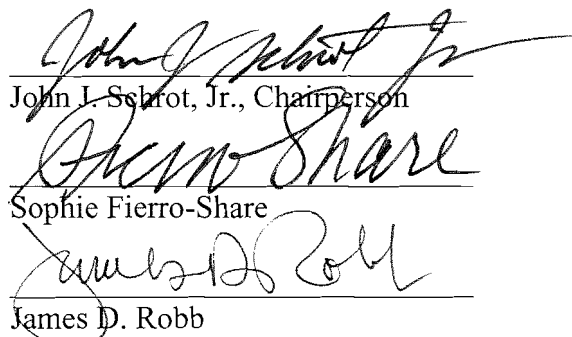 John J Schrot Jr
John J. Schrot, Jr., Chairperson
Fierro Share
Sophie Fierro-Share
James D. Robb
James D. Robb